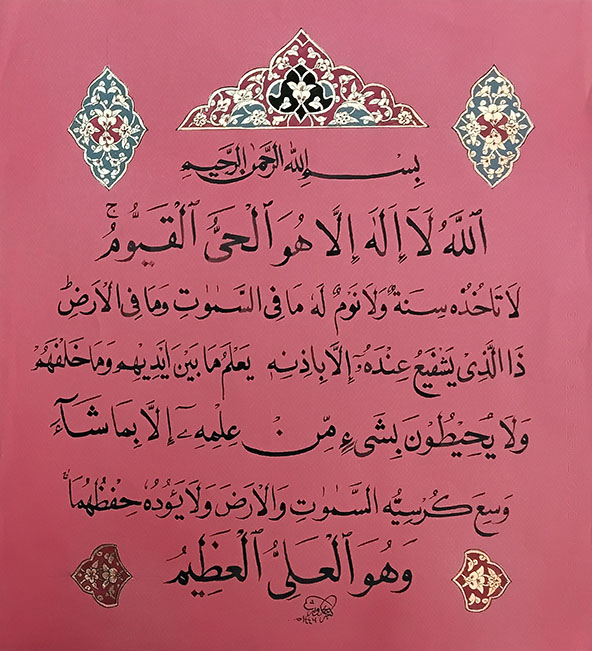 بِسْمِ اللهِ الرَّحْمٰنِ الرَّحِيْمِ
اَللّٰهُ لَآ اِلٰهَ اِلَّا هُوَ الْحَىُّ الْقَيُّوْمُ ۚ
لَا تَاْخُذُهٗ سِنَةٌ وَّلَا نَوْمٌ لَهٗ مَا فِى السَّمٰوٰتِ وَمَا فِى الْاَرْضِ ؕ
ذَا الَّذِىْ يَشْفَعُ عِنْدَهٗۤ اِلَّا بِاِذْنِهٖ يَعْلَمُ مَا بَيْنَ اَيْدِيْهِمْ وَمَا خَلْفَهُمْ
وَلَا يُحِيْطُوْنَ بِشَىْءٍ مِّنْ عِلْمِهٖۤ اِلَّا بِمَا شَآءَ
وَسِعَ كُرْسِيُّهُ السَّمٰوٰتِ وَالْاَرْضَ وَلَا يَئُوْدُهٗ حِفْظُهُمَا ۚ
وَهُوَ الْعَلِىُّ الْعَظِيْمُ
١٤٤٦هـ